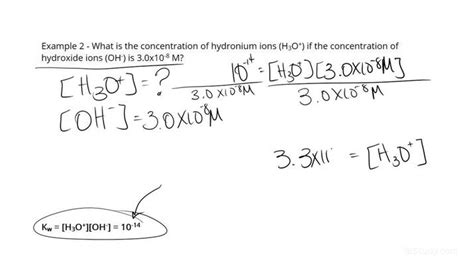 Example 2 - What is the concentration of hydronium ions (H₃O⁺) if the concentration of
hydroxide ions (OH⁻) is 3.0x10⁻⁸ M?
[H₃O⁺] = ?
[OH⁻] = 3.0x10⁻⁸M
10⁻¹⁴ = [H₃O⁺][3.0x10⁻⁸M]
3.0x10⁻⁸M 3.0x10⁻⁸M
3.3x1 = [H₃O⁺]
Kw = [H₃O⁺][OH⁻] = 10⁻¹⁴